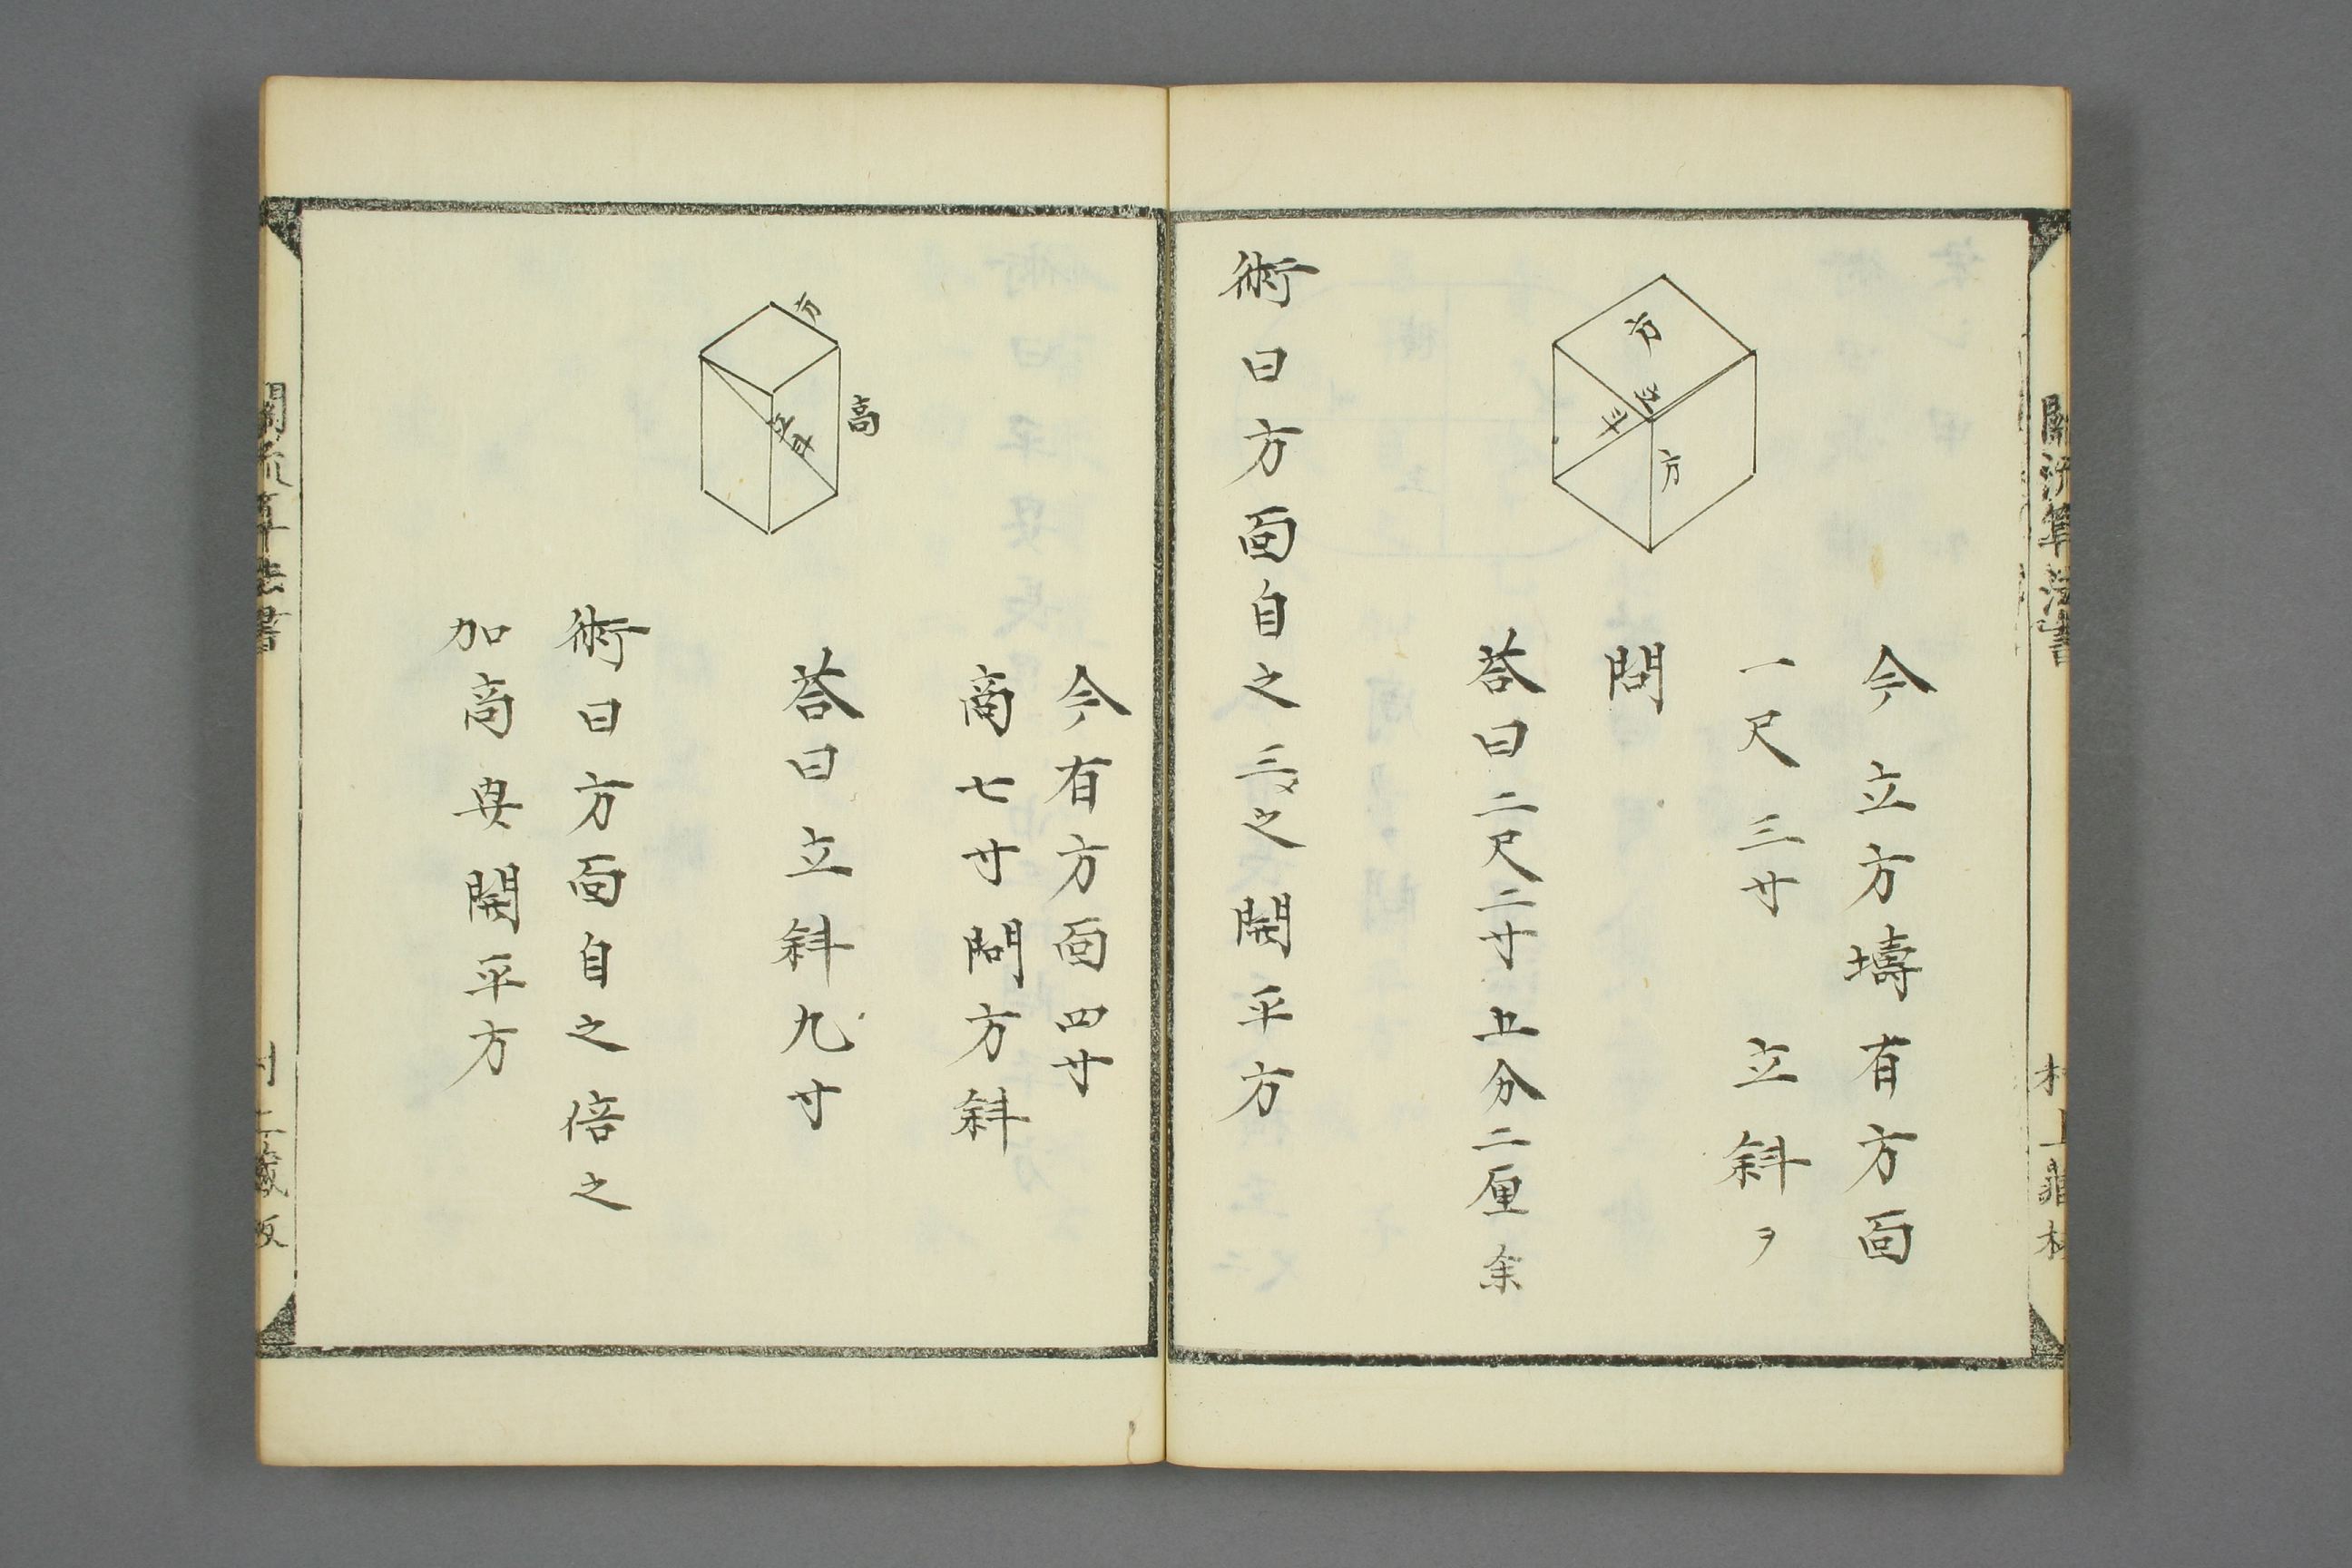 今立方壔有方面
一尺三寸立斜ヲ
問
荅曰二尺二寸五分二厘余
術曰方面自之三之開平方
方
立斜
方
今有方面四寸
高七寸問方斜
荅曰立斜九寸
術曰方面自之倍之
加高冪開平方
方
高
立斜
關流算法書